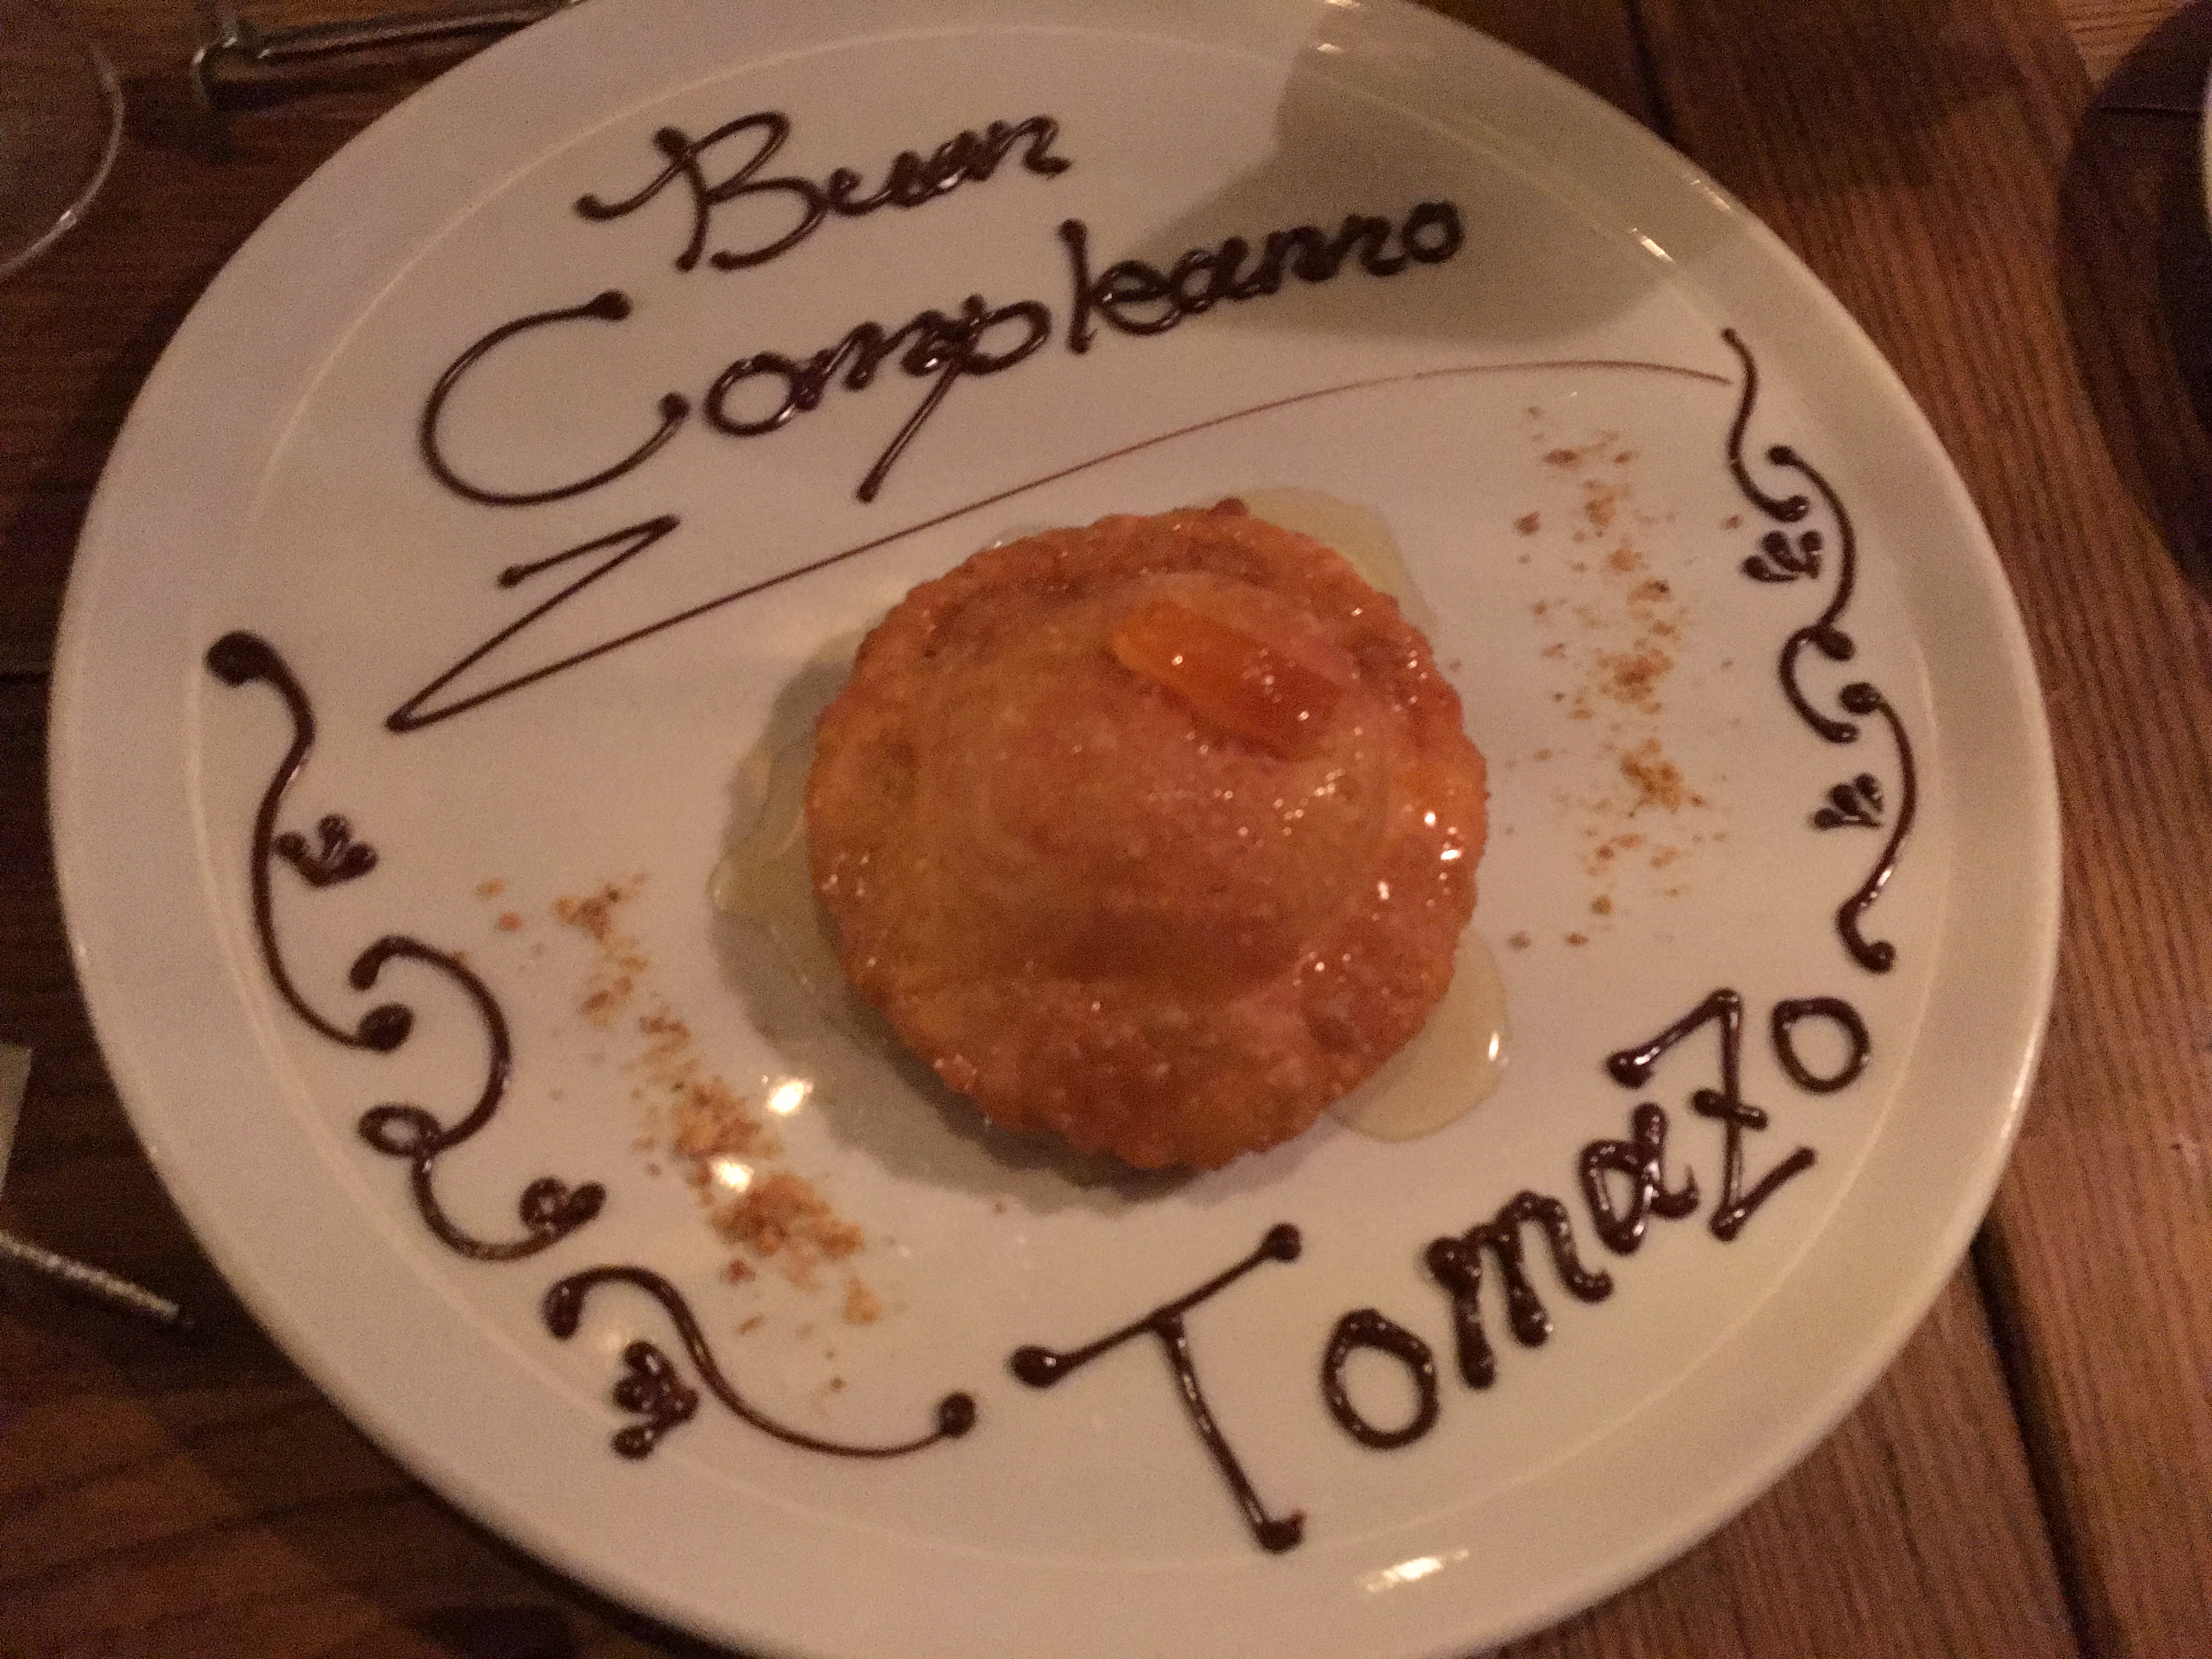 Buon
Compleanno
Tomazo